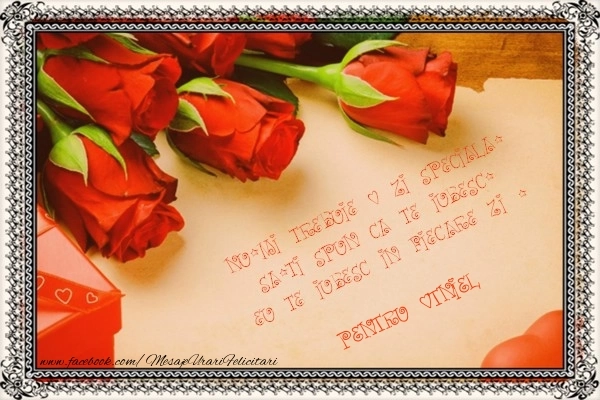 NU*MI TREBUIE O ZI SPECIALA*
SA*TI SPUN CA TE IUBESC*
EU TE IUBESC IN FIECARE ZI *
PENTRU VINEL
www.facebook.com/MesajeUrariFelicitari